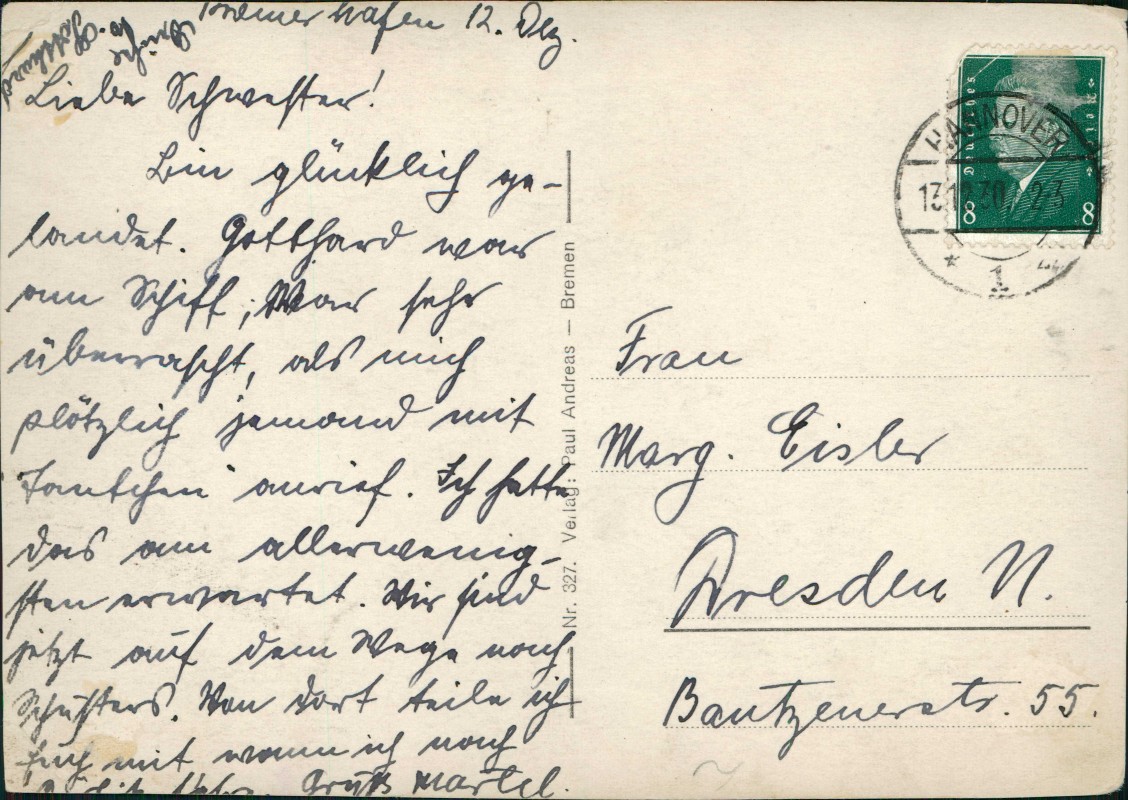 Bremerhafen 12. Dez.
Grüße
Gotthard
Liebe Schwester!
Bin glücklich ge-
landet. Gotthard war
am Schiff, War sehr
überrascht, als mich
plötzlich jemand mit
Tantchen anrief. Ich hatte
das am allerwenig-
sten erwartet. Wir sind
jetzt auf dem Wege nach
Schusters. Von dort teile ich
Euch mit wann ich nach
Gruß Martel.
Nr. 327. Verlag: Paul Andreas — Bremen
Deutsches Reich
8 8
HANNOVER
13.12.30 23
* 1
Frau
Marg. Eisler
Dresden N.
Bautzenerstr. 55.